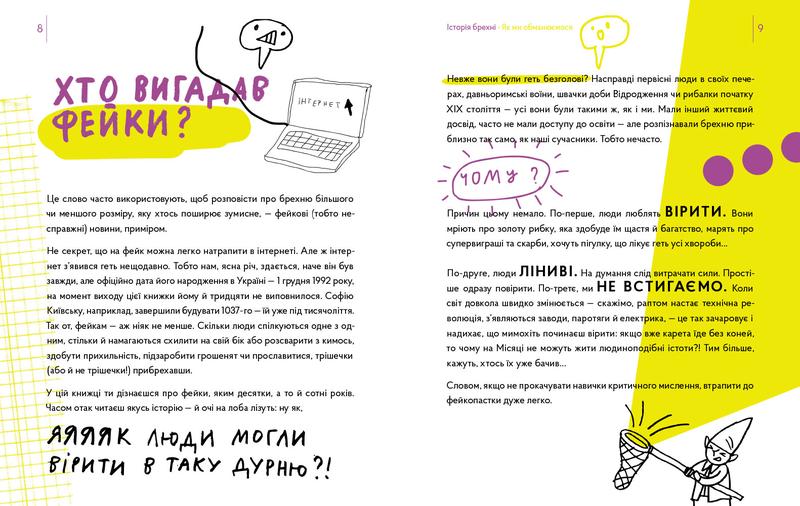 8
ХТО ВИГАДАВ
ФЕЙКИ?
ІНТЕРНЕТ
Це слово часто використовують, щоб розповісти про брехню більшого
чи меншого розміру, яку хтось поширює зумисне, — фейкові (тобто не-
справжні) новини, приміром.
Не секрет, що на фейк можна легко натрапити в інтернеті. Але ж інтер-
нет з'явився геть нещодавно. Тобто нам, ясна річ, здається, наче він був
завжди, але офіційно дата його народження в Україні — 1 грудня 1992 року,
на момент виходу цієї книжки йому й тридцяти не виповнилося. Софію
Київську, наприклад, завершили будувати 1037-го — їй уже під тисячоліття.
Так от, фейкам — аж ніяк не менше. Скільки люди спілкуються одне з од-
ним, стільки й намагаються схилити на свій бік або розсварити з кимось,
здобути прихильність, підзаробити грошенят чи прославитися, трішечки
(або й не трішечки!) прибрехавши.
У цій книжці ти дізнаєшся про фейки, яким десятки, а то й сотні років.
Часом отак читаєш якусь історію — й очі на лоба лізуть: ну як,
ЯЯЯЯК ЛЮДИ МОГЛИ
ВІРИТИ В ТАКУ ДУРНЮ?!
Історія брехні · Як ми обманюємося
9
Невже вони були геть безголові? Насправді первісні люди в своїх пече-
рах, давньоримські воїни, швачки доби Відродження чи рибалки початку
XIX століття — усі вони були такими ж, як і ми. Мали інший життєвий
досвід, часто не мали доступу до освіти — але розпізнавали брехню при-
близно так само, як наші сучасники. Тобто нечасто.
ЧОМУ?
Причин цьому немало. По-перше, люди люблять ВІРИТИ. Вони
мріють про золоту рибку, яка здобуде їм щастя й багатство, марять про
супервиграші та скарби, хочуть пігулку, що лікує геть усі хвороби...
По-друге, люди ЛІНИВІ. На думання слід витрачати сили. Прості-
ше одразу повірити. По-третє, ми НЕ ВСТИГАЄМО. Коли
світ довкола швидко змінюється — скажімо, раптом настає технічна ре-
волюція, з'являються заводи, паротяги й електрика, — це так зачаровує і
надихає, що мимохіть починаєш вірити: якщо вже карета їде без коней,
то чому на Місяці не можуть жити людиноподібні істоти?! Тим більше,
кажуть, хтось їх уже бачив...
Словом, якщо не прокачувати навички критичного мислення, втрапити до
фейкопастки дуже легко.